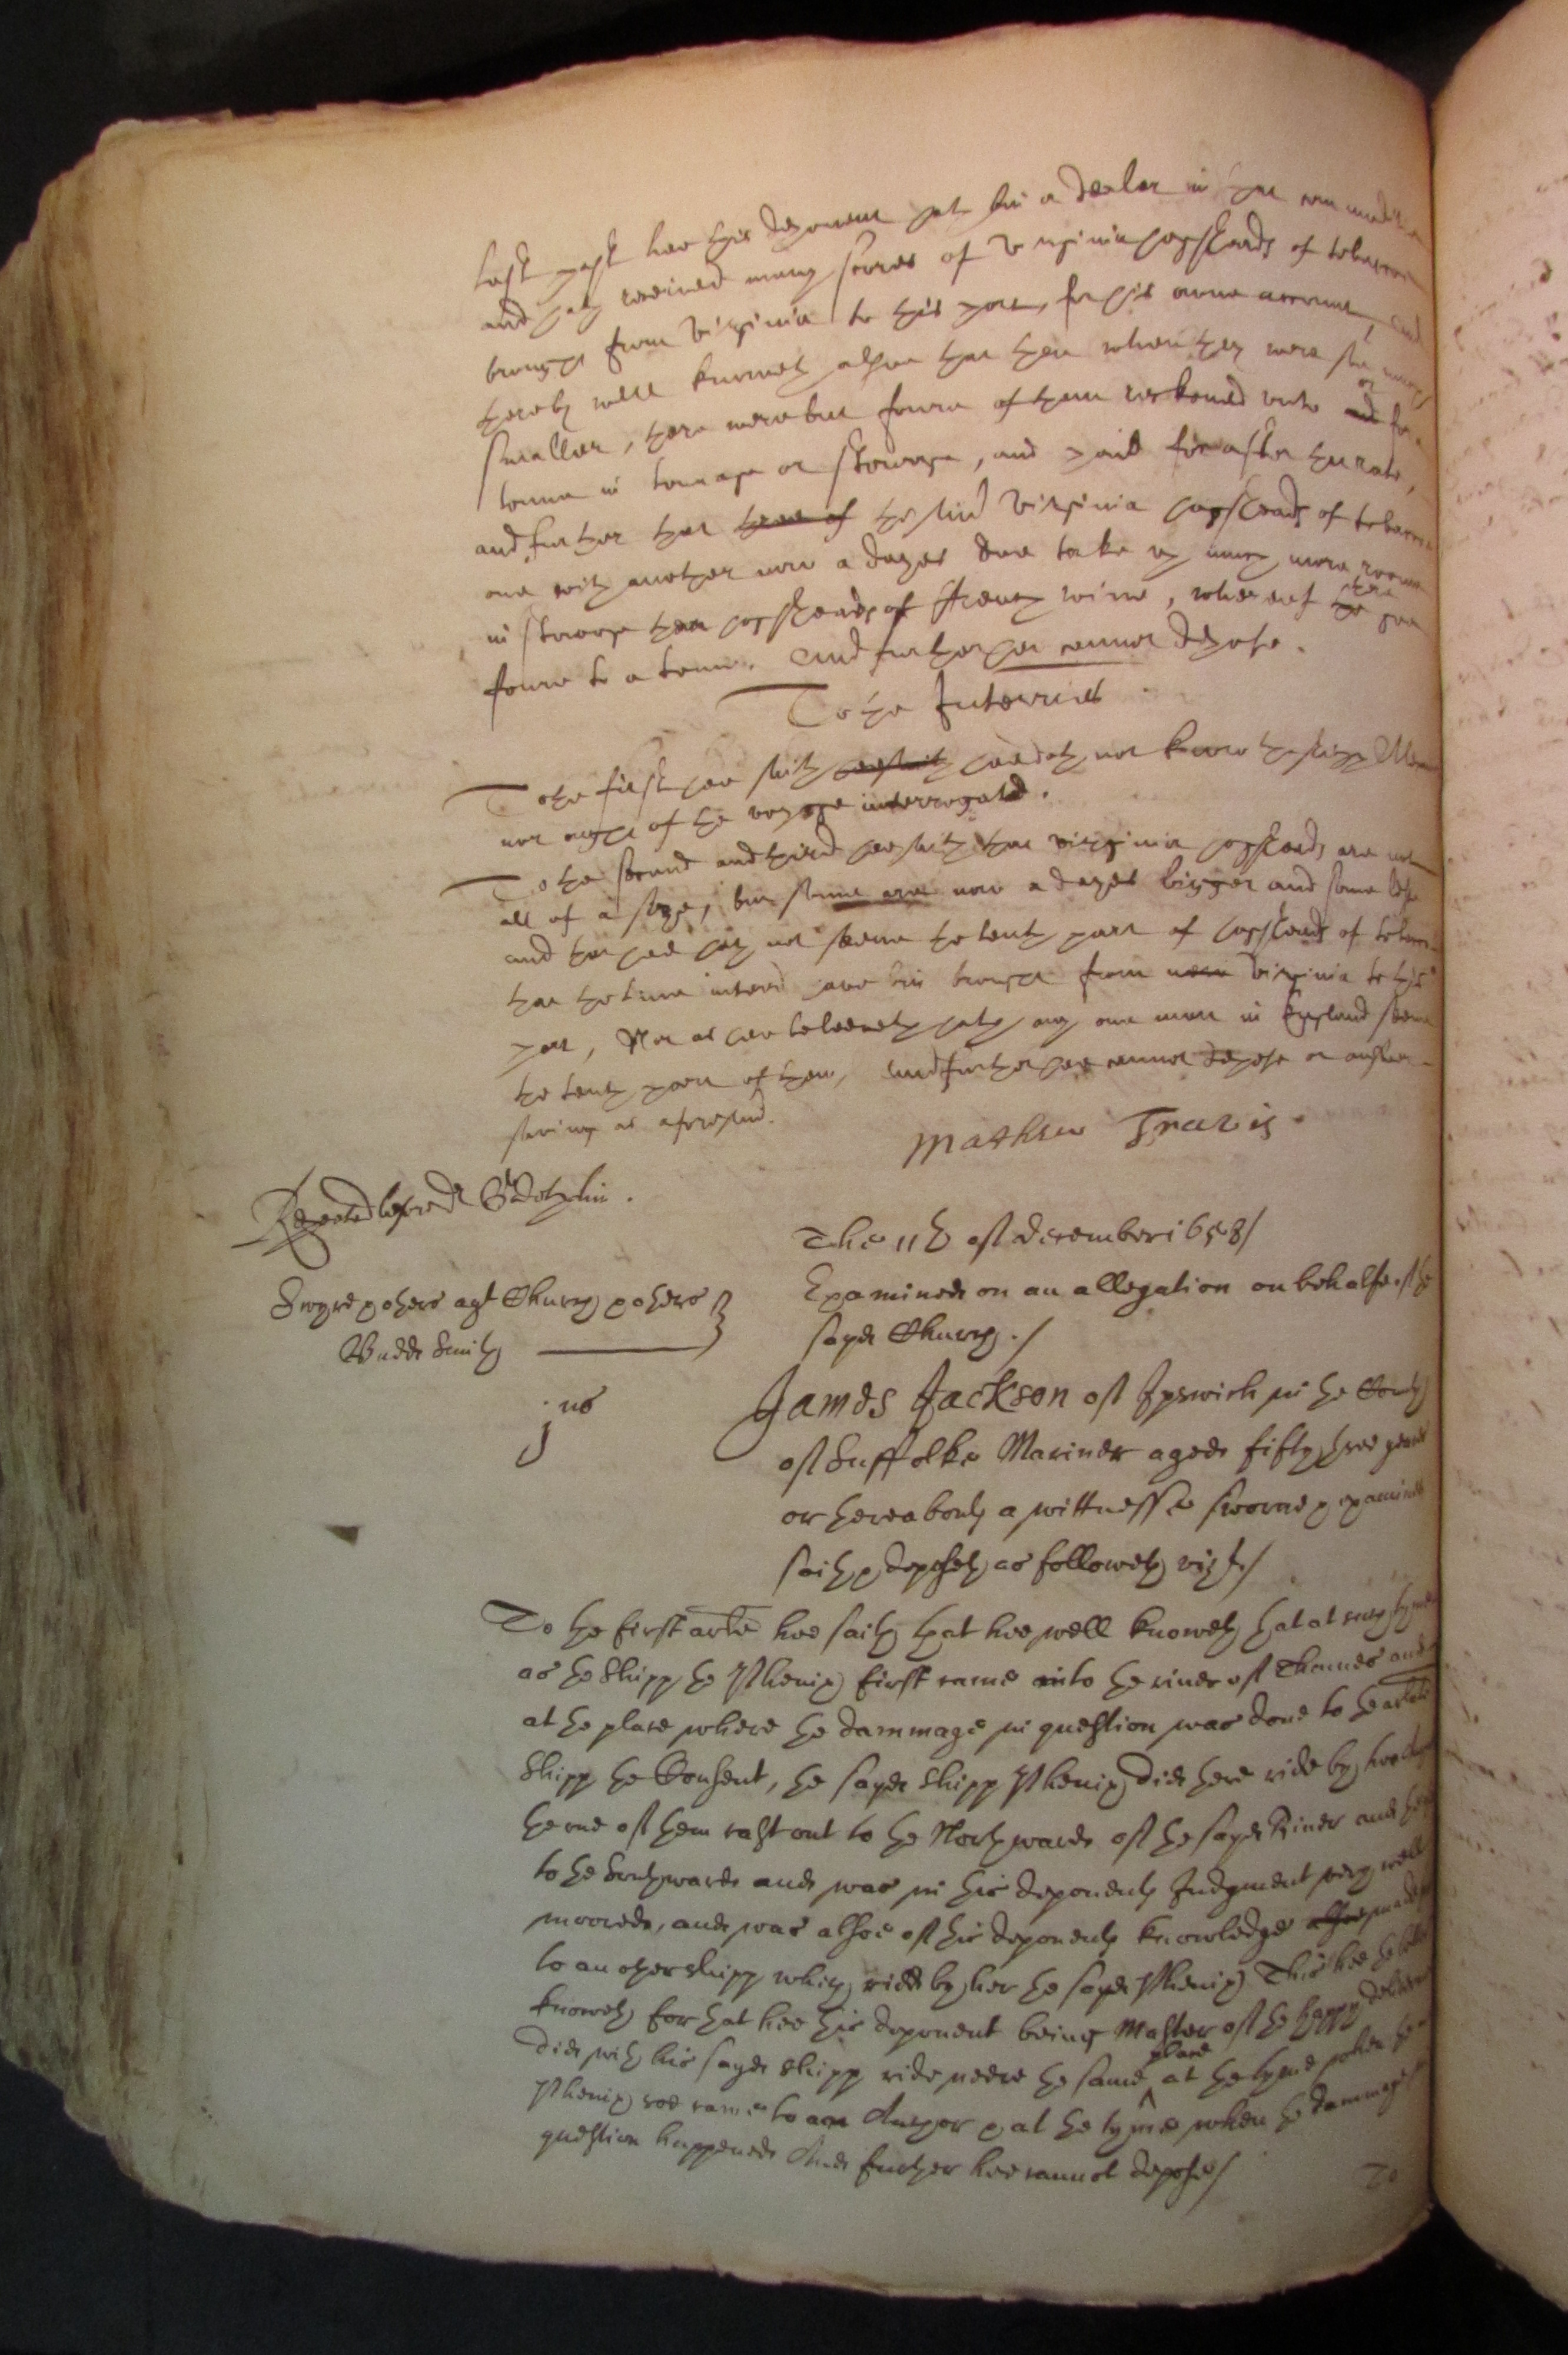 last past hee this deponent hath bin a dealer in that commoditie
and hath received many scores of Virginia hogsheads of tobaccoe
brought from Virginia to this port, for his owne accompt, and
thereby well knoweth alsoe that then when they were soe much
smaller, there were but foure of them reckoned unto or for a
tonne in tonnage or stowage, and paid for after that rate,
and further that the said Virginia hogsheads of tobaccoe
one with another now a dayes doe take up much more roome
in stowage then hogsheads of French wine, whereof there goe
foure to a tonne. And further hee cannot depose.
To the Interries
To the first hee saith hee doth not know the shipp
nor ought of the voyage interrogated.
To the second and third hee saith that Virginia hogsheads are not
all of a size, but some are now a dayes bigger and some lesse
and that hee hath not seene the tenth part of hogsheads of tobaccoe
that the time interrd have bin brought from Virginia to this
port, Nor as hee beleeveth hath any one man in England seene
the tenth part of them, And further hee cannot depose or answer
saving as aforesaid.
Mathew Travis.
Repeated before dr Godolphin.
The 11th of december 1658/
Swyre pthers agt Churry pthers
Budd Smith
Examined on an allegation on behalfe of the
sayd Churry./
jus
James Jackson of Ipswich in the County
of Suffolke Mariner aged fifty three yeares
or thereabouts a wittnesse sworne & examined
saith & deposeth as followeth vizt./
To the first arle hee saith that hee well knoweth that at such tyme
as the Shipp the Phenix first came into the river of Thames and
at the place where the dammage in question was done to the arlate
Shipp the Consent, the sayd shipp Phenix did there ride by two
the one of them cast out to the Northward of the sayd River and the
to the Southward and was in this deponents Judgment very well
moored, and was alsoe of this deponents knowledge made
to another shipp which ridd by her the sayd Phenix This hee the better
knoweth for that hee this deponent being Master of the happy
did with his sayd shipp ride neere the same place at the tyme when the
Phenix soe came to an Anchor & at the tyme when the dammage in
question happened And further hee cannot depose/
To